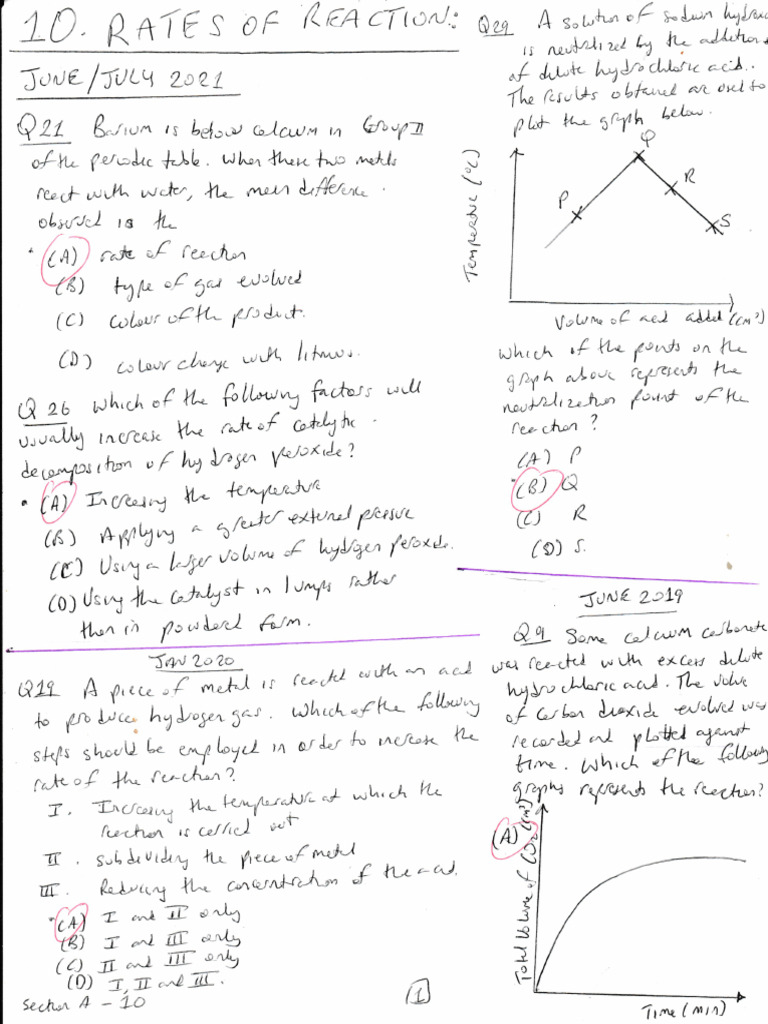 10. RATES OF REACTION:
JUNE/JULY 2021
Q21 Barium is below calcium in Group II
of the periodic table. When these two metals
react with water, the main difference
observed is the
(A) rate of reaction
(B) type of gas evolved
(C) colour of the product.
(D) colour change with litmus.
Q 26 Which of the following factors will
usually increase the rate of catalytic
decomposition of hydrogen peroxide?
(A) Increasing the temperature
(B) Applying a greater external pressure
(C) Using a larger volume of hydrogen peroxide.
(D) Using the catalyst in lumps rather
than in powdered form.
JAN 2020
Q19 A piece of metal is reacted with an acid
to produce hydrogen gas. Which of the following
steps should be employed in order to increase the
rate of the reaction?
I. Increasing the temperature at which the
reaction is carried out
II. subdividing the piece of metal
III. Reducing the concentration of the acid.
(A) I and II only
(B) I and III only
(C) II and III only
(D) I, II and III.
Section A - 10
1
Q29 A solution of sodium
is neutralized by the addition
of dilute hydrochloric acid.
The results obtained are used to
plot the graph below.
Temperature (°C)
P
Q
R
S
Volume of acid added (cm³)
Which of the points on the
graph above represents the
neutralization point of the
reaction?
(A) P
(B) Q
(C) R
(D) S.
JUNE 2019
Q9 Some calcium carbonate
was reacted with excess dilute
hydrochloric acid. The
of carbon dioxide evolved was
recorded and plotted against
time. Which of the following
graphs represents the reaction?
(A)
Total Volume of CO₂ (cm³)
Time (min)